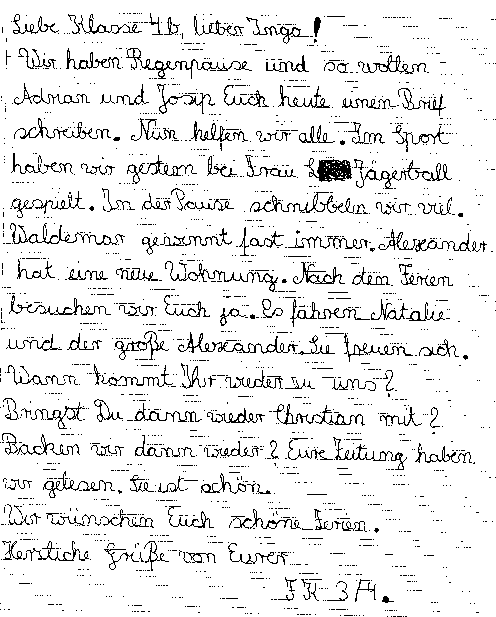 Liebe Klasse 4b, lieber Ingo!
Wir haben Regenpause und so wollen
Adrian und Josip Euch heute einen Brief
schreiben. Nun helfen wir alle. Im Sport
haben wir gestern bei Frau Jägerball
gespielt. In der Pause schnibbeln wir viel.
Waldemar gewinnt fast immer. Alexander
hat eine neue Wohnung. Nach den Ferien
besuchen wir Euch ja. Es fahren Natalie
und der große Alexander. Sie freuen sich.
Wann kommt Ihr wieder zu uns?
Bringst Du dann wieder Christian mit?
Backen wir dann wieder? Eure Zeitung haben
wir gelesen. Sie ist schön.
Wir wünschen Euch schöne Ferien.
Herzliche Grüße von Eurer
FK 3/4.